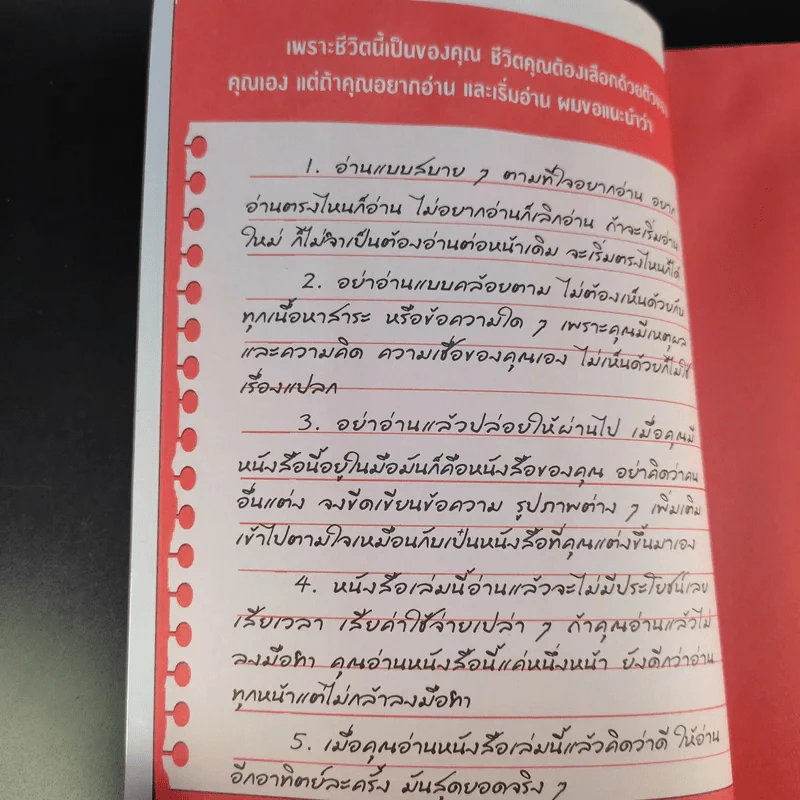 เพราะชีวิตนี้เป็นของคุณ ชีวิตคุณต้องเลือกด้วยตัวของ
คุณเอง แต่ถ้าคุณอยากอ่าน และเริ่มอ่าน ผมขอแนะนำว่า
1. อ่านแบบสบาย ๆ ตามที่ใจอยากอ่าน อยาก
อ่านตรงไหนก็อ่าน ไม่อยากอ่านก็เลิกอ่าน ถ้าจะเริ่มอ่าน
ใหม่ ก็ไม่จำเป็นต้องอ่านต่อหน้าเดิม จะเริ่มตรงไหนก็ได้
2. อย่าอ่านแบบคล้อยตาม ไม่ต้องเห็นด้วยกับ
ทุกเนื้อหาสาระ หรือข้อความใด ๆ เพราะคุณมีเหตุผล
และความคิด ความเชื่อของคุณเอง ไม่เห็นด้วยก็ไม่ใช่
เรื่องแปลก
3. อย่าอ่านแล้วปล่อยให้ผ่านไป เมื่อคุณมี
หนังสือนี้อยู่ในมือมันก็คือหนังสือของคุณ อย่าคิดว่าคน
อื่นแต่ง จงขีดเขียนข้อความ รูปภาพต่าง ๆ เพิ่มเติม
เข้าไปตามใจเหมือนกับเป็นหนังสือที่คุณแต่งขึ้นมาเอง
4. หนังสือเล่มนี้อ่านแล้วจะไม่มีประโยชน์เลย
เสียเวลา เสียค่าใช้จ่ายเปล่า ๆ ถ้าคุณอ่านแล้วไม่
ลงมือทำ คุณอ่านหนังสือนี้แค่หนึ่งหน้า ยังดีกว่าอ่าน
ทุกหน้าแต่ไม่กล้าลงมือทำ
5. เมื่อคุณอ่านหนังสือเล่มนี้แล้วคิดว่าดี ให้อ่าน
อีกอาทิตย์ละครั้ง มันสุดยอดจริง ๆ